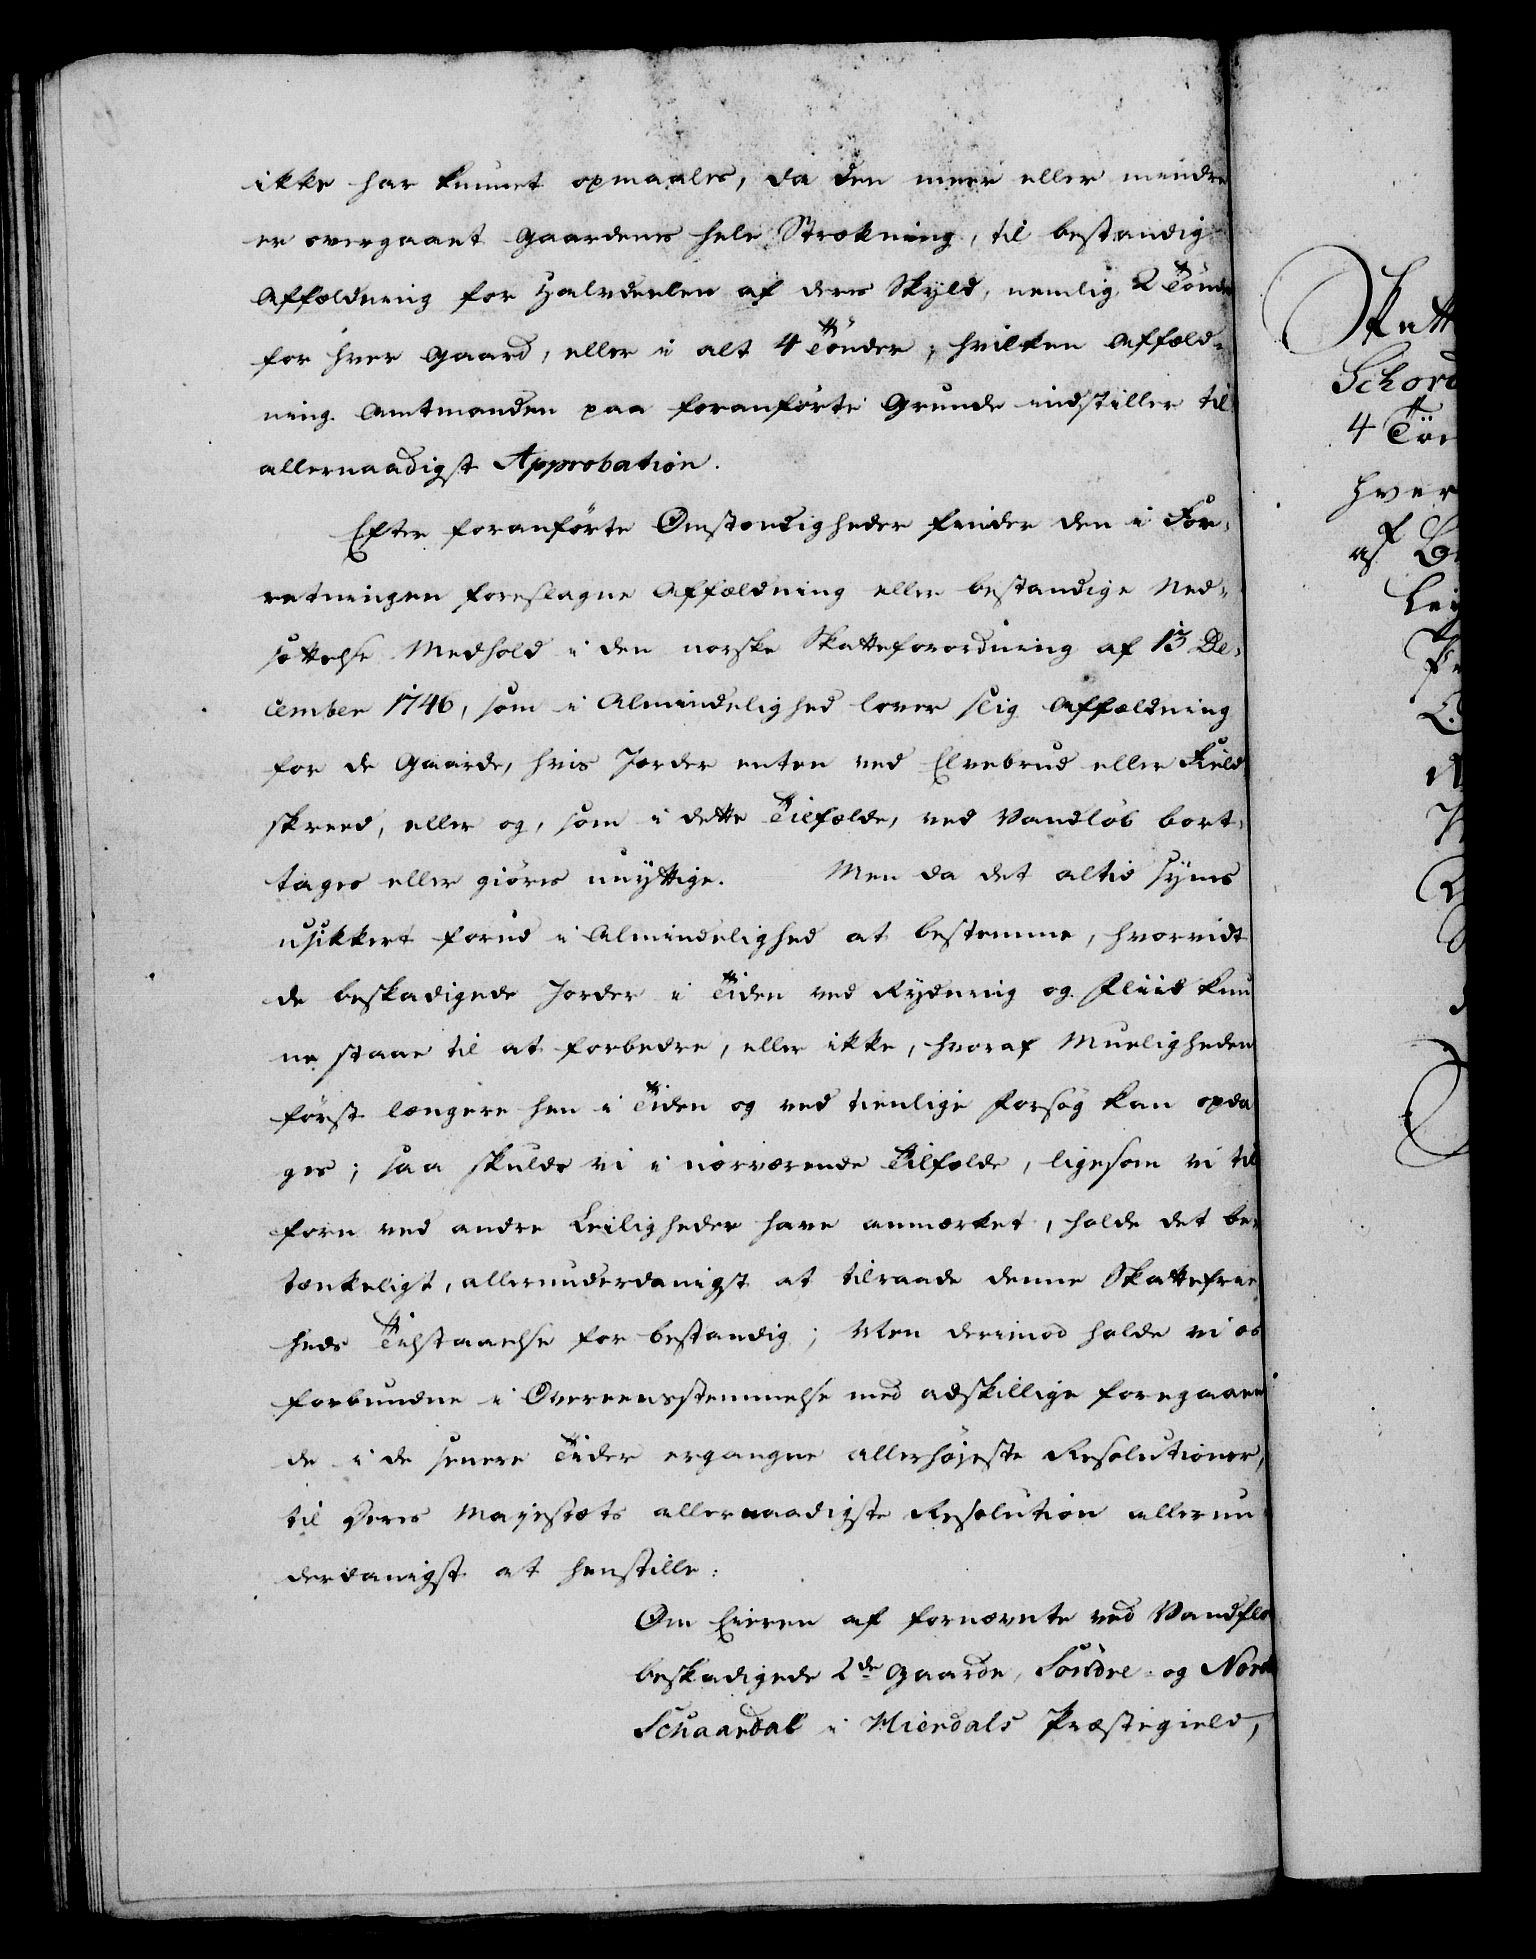 ikke har kunnet opmaales, da den meer eller mindre
er overgaaet Gaardenes hele Strekning, til bestandig
Affældning for Halvdeelen af deres Skyld, nemlig 2 Tønder
for hver Gaard, eller i alt 4 Tønder, hvilken Affæld-
ning Amtmanden paa foranførte Grunde indstiller til
allernaadigst Approbation.
Efter foranførte Omstændigheder finder den i For-
retningen foreslagne Affældning eller bestandige Ned-
sættelse Medhold i den norske Skatteforordning af 13 De-
cember 1746, som i Almindelighed lover slig Affældning
for de Gaarde, hvis Jorder enten ved Elvebrud eller Field
skreed, eller og, som i dette Tilfælde, ved Vandløb bort-
tages eller giøres unyttige. Men da det altid synes
usikkert forud i Almindelighed at bestemme, hvorvidt
de beskadigede Jorder i Tiden ved Rydning og Fliid kun
ne staae til at forbedre, eller ikke, hvoraf Mueligheden
først længere hen i Tiden og ved tienlige Forsøg kan opda
ges; saa skulde vi i nærværende Tilfælde, ligesom vi til
forn ved andre Leiligheder have anmærket, holde det be-
tænkeligt, allerunderdanigst at tilraade denne Skattefrie
heds Tilstaaelse for bestandig; Men derimod holde vi os
forbundne i Overeensstemmelse med adskillige foregaaen
de i de senere Tider ergangne allerhøjeste Resolutioner,
til Deres Majestæts allernaadigste Resolution allerun
derdanigst at henstille:
Om Eieren af fornævnte ved Vandflo
beskadigede 2de Gaarde, Søndre og Nord
Schaardal i Hierdals Præstegield,
Skatt
Schord
4 Tøn
hver
af